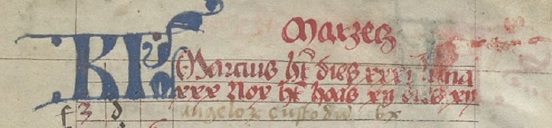 Marzes
KL Marcius ht dies xxxi luna
xxx Nox ht horas xij dies xij
f 3 d angelo custodu bx